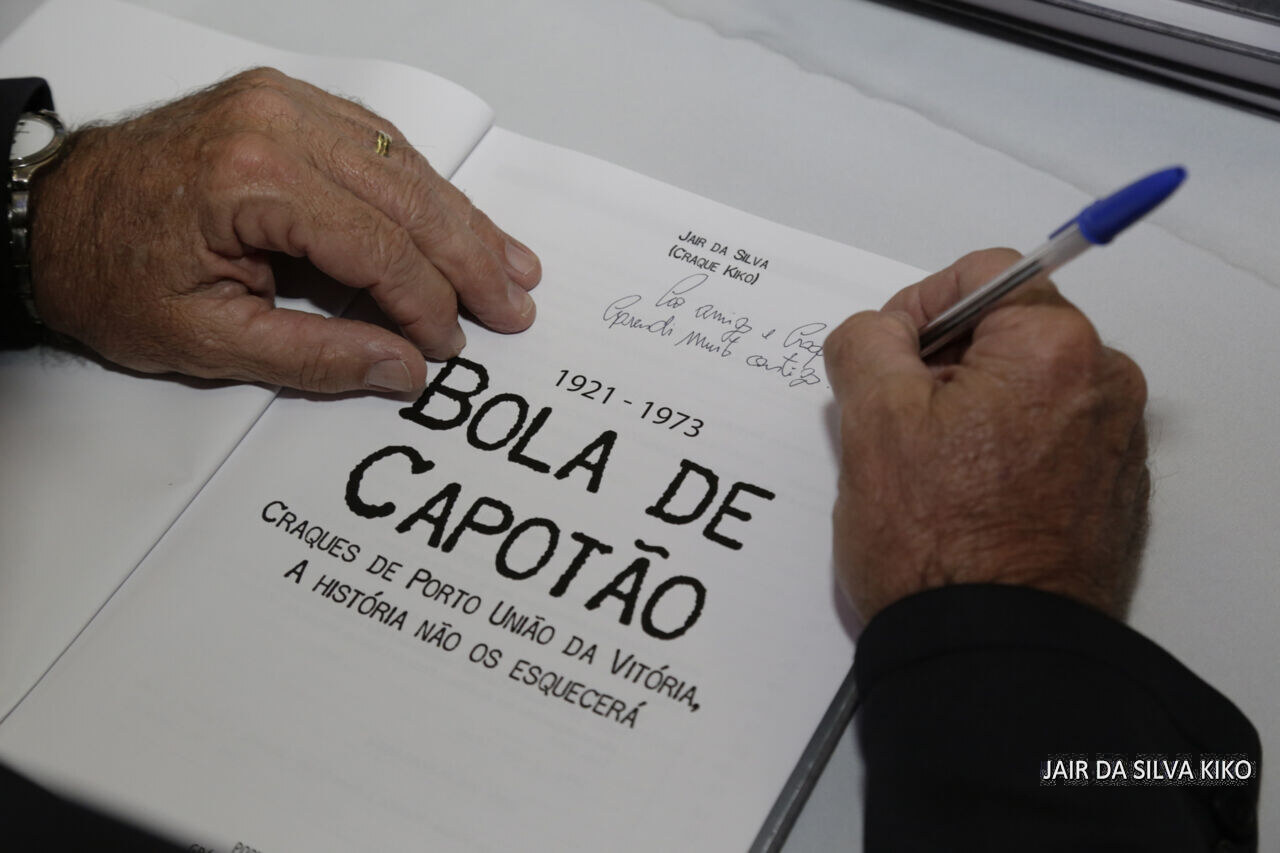 JAIR DA SILVA
(CRAQUE KIKO)
Ao amigo e
Aprendi muito contigo.
1921 - 1973
BOLA DE
CAPOTÃO
CRAQUES DE PORTO UNIÃO DA VITÓRIA,
A HISTÓRIA NÃO OS ESQUECERÁ
JAIR DA SILVA KIKO